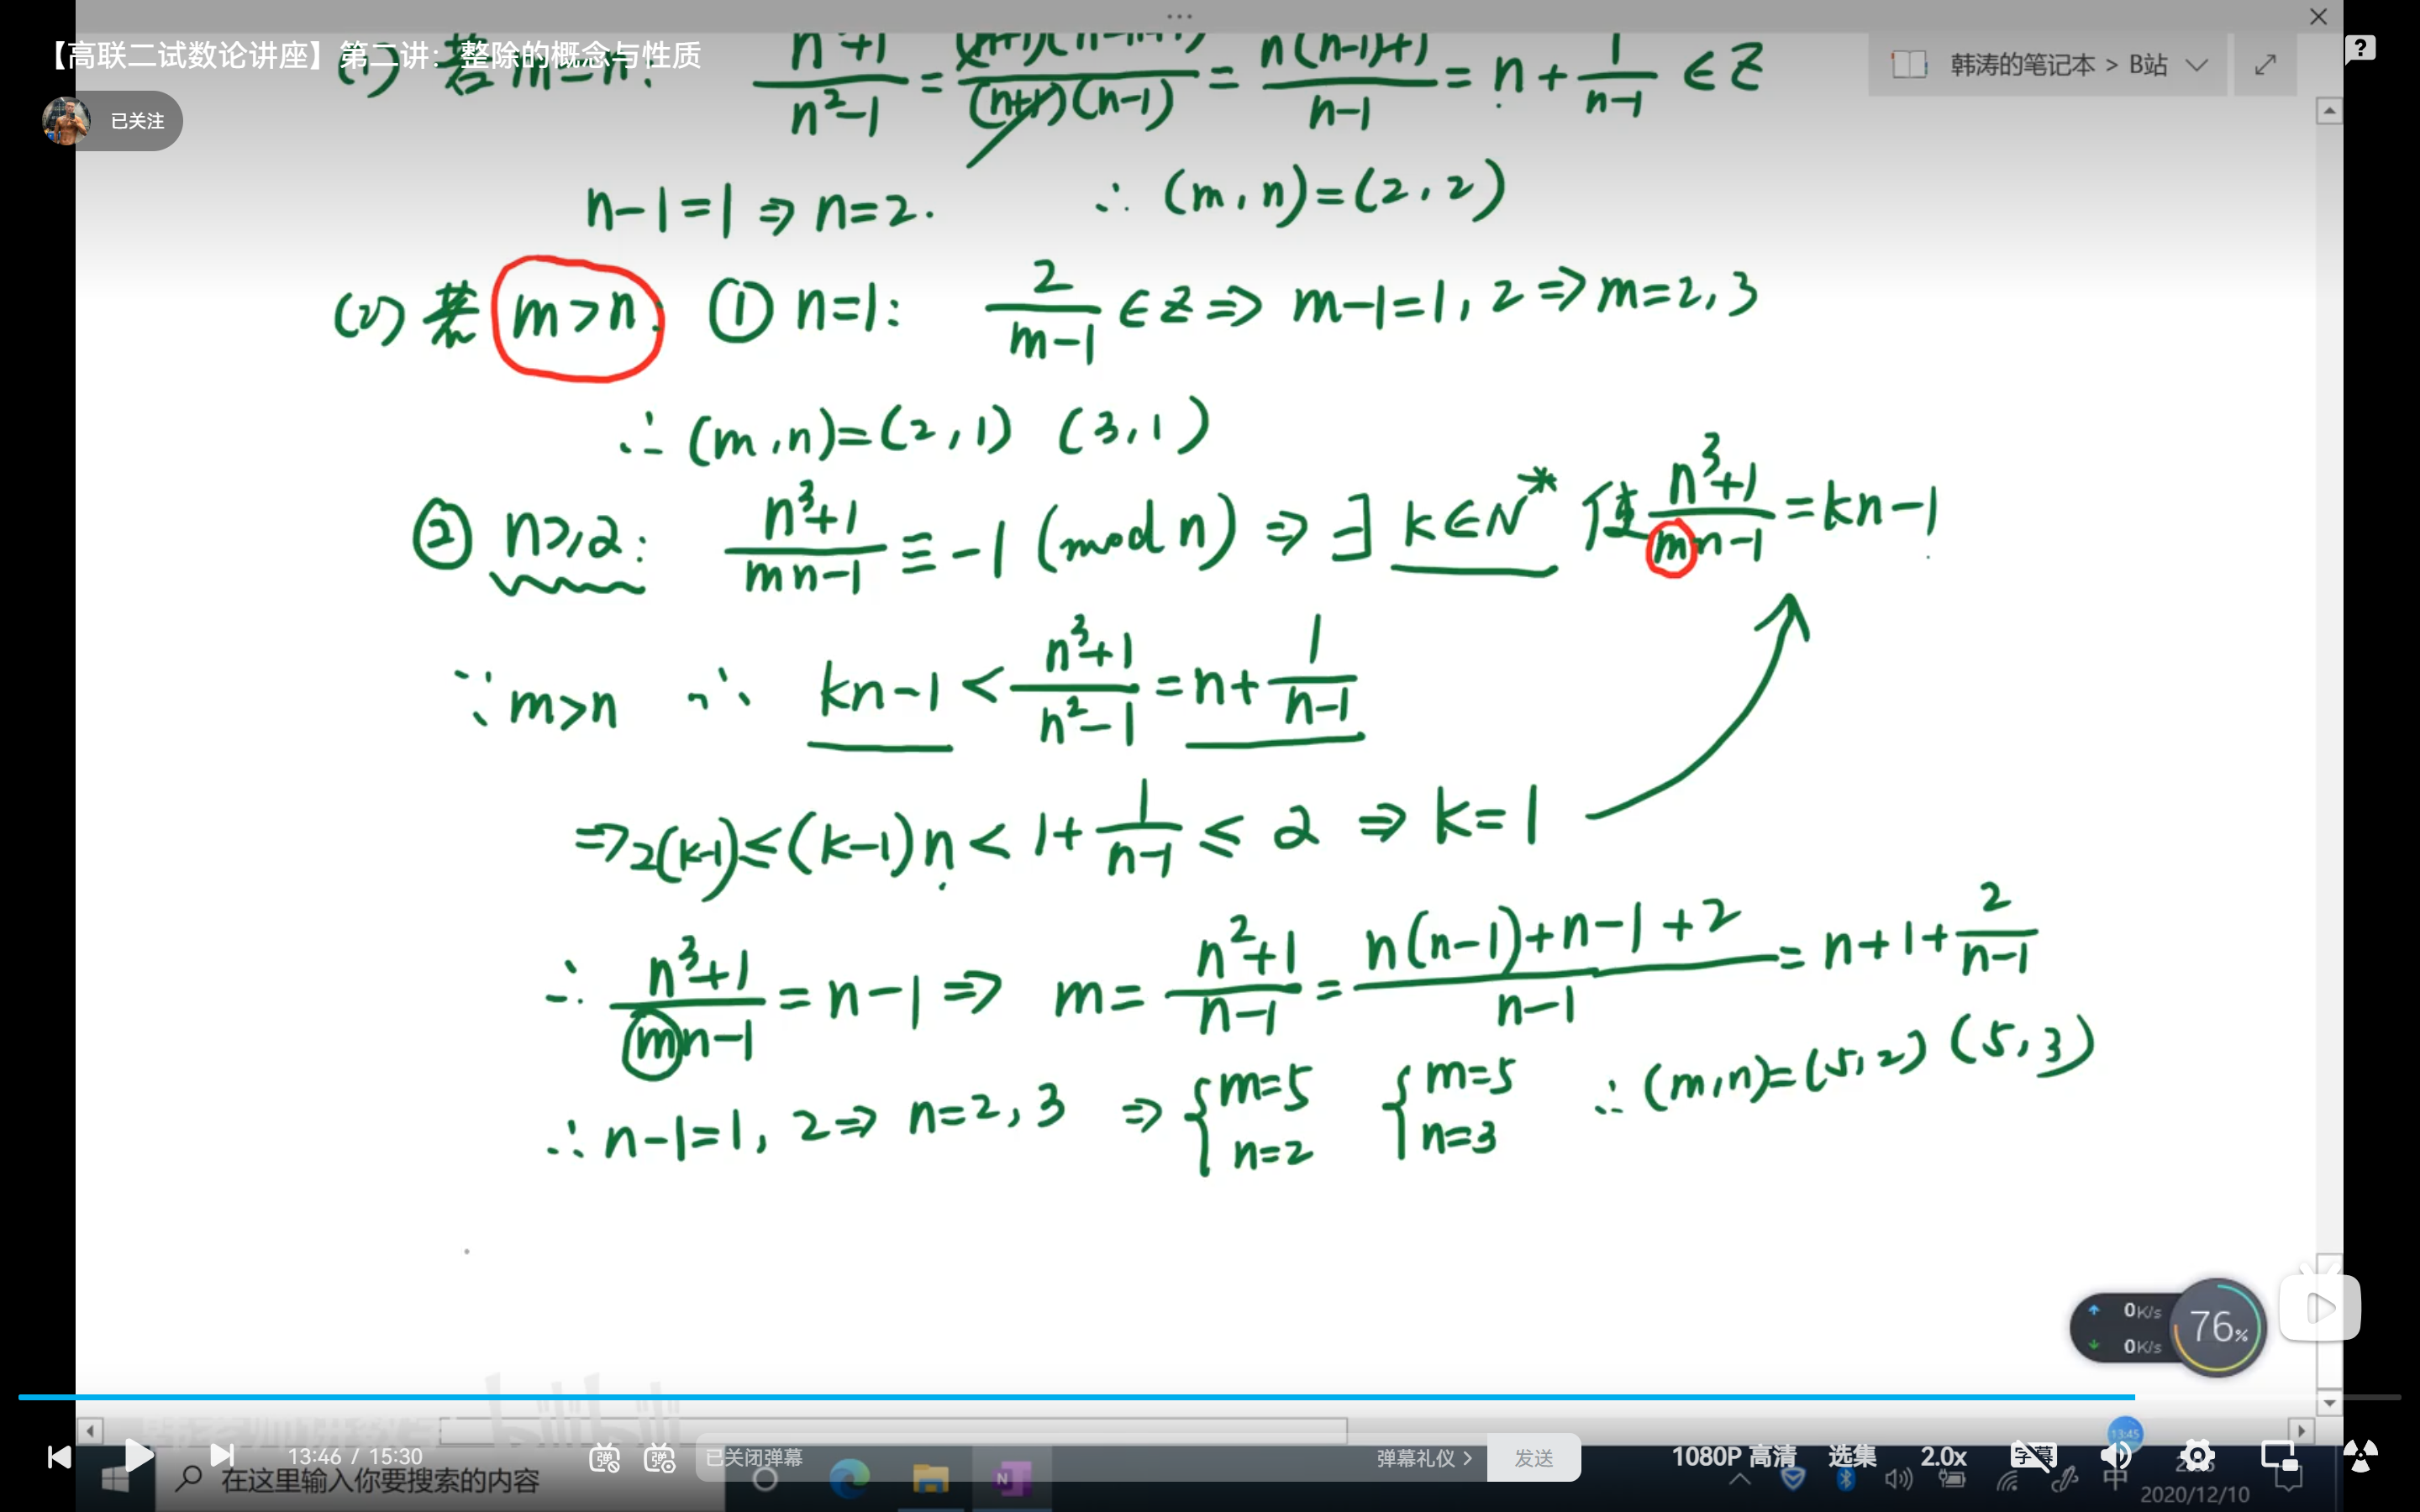 【高联二试数论讲座】第二讲：整除的概念与性质
韩涛的笔记本 > B站
已关注
(1) 若 m=n: n³+1/n²-1 = (n+1)(n²-n+1)/(n+1)(n-1) = n(n-1)+1/n-1 = n + 1/n-1 ∈ Z
n-1=1 ⇒ n=2. ∴ (m,n)=(2,2)
(2) 若 m>n: ① n=1: 2/m-1 ∈ Z ⇒ m-1=1, 2 ⇒ m=2, 3
∴ (m,n)=(2,1) (3,1)
② n≥2: n³+1/mn-1 ≡ -1 (mod n) ⇒ ∃ k∈N* 使 n³+1/mn-1 = kn-1
∵ m>n ∴ kn-1 < n³+1/n²-1 = n+ 1/n-1
⇒ 2(k-1) ≤ (k-1)n < 1+ 1/n-1 ≤ 2 ⇒ k=1
∴ n³+1/mn-1 = n-1 ⇒ m= n²+1/n-1 = n(n-1)+n-1+2/n-1 = n+1+ 2/n-1
∴ n-1=1, 2 ⇒ n=2, 3 ⇒ { m=5 n=2 { m=5 n=3 ∴ (m,n)=(5,2) (5,3)
0K/s
0K/s
76%
bilibili
13:45
13:46 / 15:30
弹
弹
已关闭弹幕
弹幕礼仪 >
发送
1080P 高清
选集
2.0x
字幕
在这里输入你要搜索的内容
中
2020/12/10